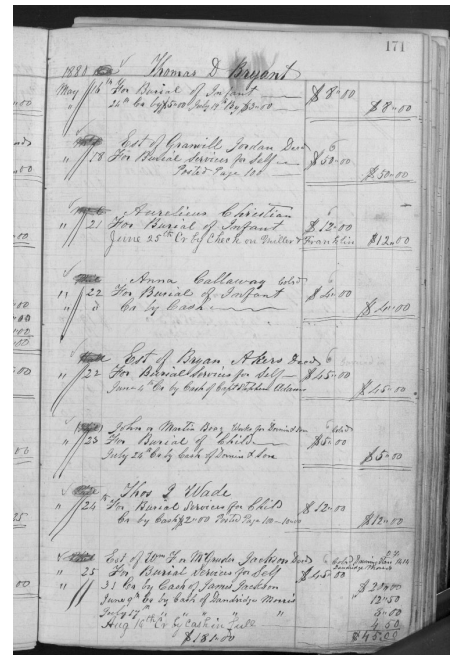 171
1880 Thomas D Bryant
May 16th For Burial of Infant $8.00
26th Cr by $5.00 July 19th By $3.00 $8.00
Est of Granvill Jordan Decd
" 18 For Burial Services for Self $50.00
Posted Page 100 $50.00
Aurelious Christian
" 21 For Burial of Infant $12.00
June 25th Cr by Check on Miller & Franklin $12.00
Anna Callaway Cold
" 22 For Burial of Infant $4.00
" " Cr by Cash $4.00
Est of Bryan Akers Decd
" 22 For Burial Services for Self $45.00
June 4th Cr by Cash of Capt Stephen Adams $45.00
John Martin Works for
" 23 For Burial of Child $5.00
July 28th Cr by Cash of & Son $5.00
Thos Wade
" 24 For Burial Services for Child $12.00
Cr by Cash $2.00 Posted Page 100 $12.00
Est of Wm Jackson Decd Cold
" 25 For Burial Services for Self $45.00
" 31 Cr by Cash of James Jackson $21.00
June 9th Cr by Cash of Dandridge Morris 12.50
July 17th " " " " " 5.00
Aug 14th Cr By Cash in Full 4.50
$181.00 $45.00